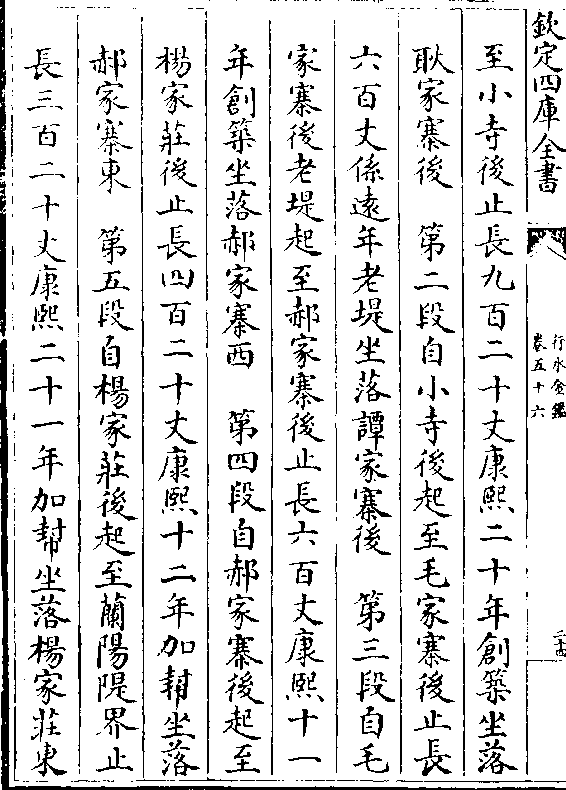 欽定四庫全書
行水金鑑
卷五十六
二十四
至小寺後止長九百二十丈康熙二十年創築坐落
耿家寨後　第二段自小寺後起至毛家寨後止長
六百丈係遠年老堤坐落譚家寨後　第三段自毛
家寨後老堤起至郝家寨後止長六百丈康熙十一
年創築坐落郝家寨西　第四段自郝家寨後起至
楊家莊後止長四百二十丈康熙十二年加幇坐落
郝家寨東　第五段自楊家莊後起至蘭陽隄界止
長三百二十丈康熙二十一年加幇坐落楊家莊東